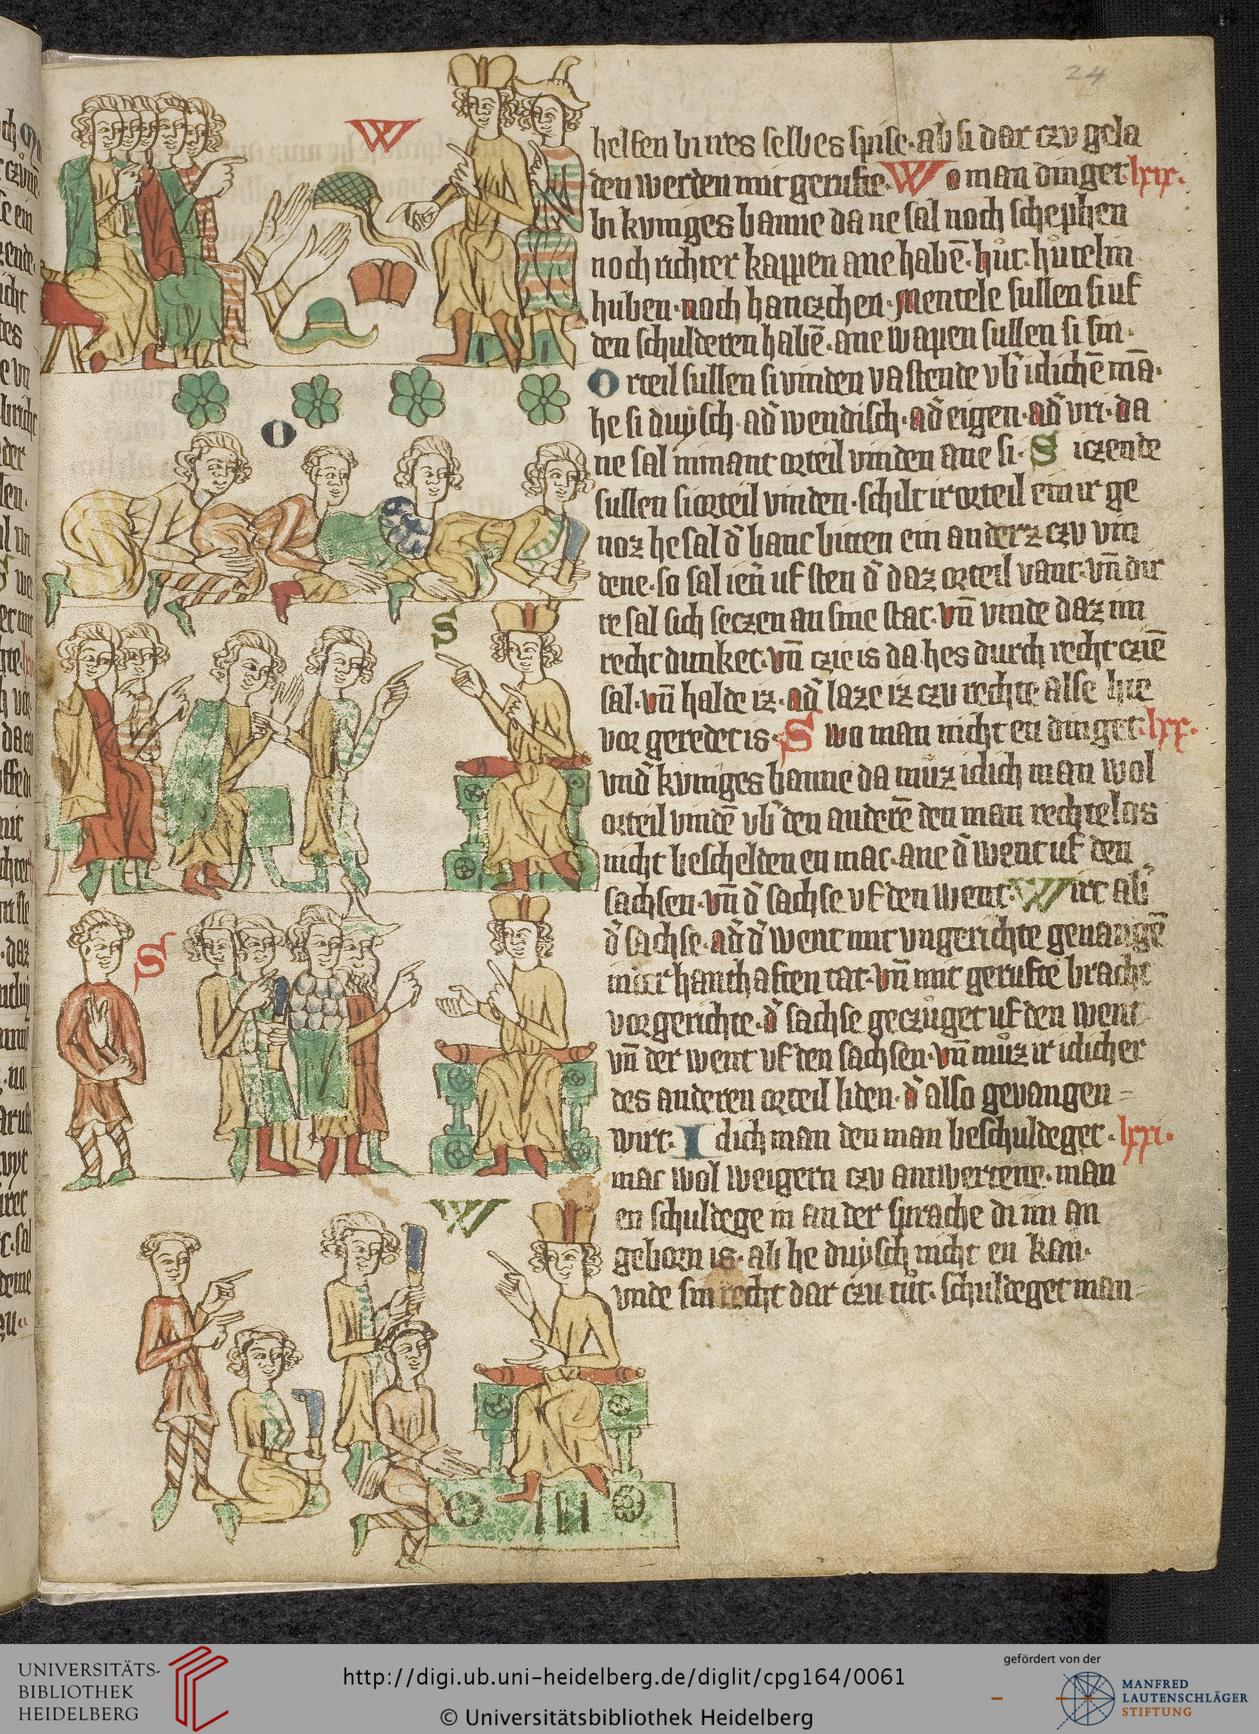 24
helfen bi ires selbes spise. ab si dar czv gela
den werden mit gerufte. Wo man dinget lxix.
bi kvniges banne da ne sal noch schephen
noch richter kappen ane habē. hůt. hůtelin
huben. noch hantzchen. Mentele sullen si uf
den schulderen habē. ane wapen sullen si sin.
Orteil sullen si vinden vastende vb' iclichē mā.
he si duysch. ad' wendisch. ad' eigen. ad' vri. da
ne sal nimant orteil vinden ane si. Siczende
sullen si orteil vinden. schilt ir orteil ein ir ge
noz he sal d' banc bitten ein anderz czv vin
dene. so sal ien' uf sten d' daz orteil vant. vn̄ dir
re sal sich seczen an sine stat. vn̄ vinde daz im
recht dunket. vn̄ czie is da hes durch recht cziē
sal. vn̄ halde iz. ad' laze iz czu rechte alse hie
vor geredet is. Swo man nicht en dinget. lxx.
vnd' kvniges banne da můz iclich man wol
orteil vindē vb' den anderē den man rechtelos
nicht beschelden en mac. ane d' went uf den
sachsen. vn̄ d' sachse vf den went. Wirt ab'
d' sachse. ad' d' went mit vngerichte gevangē
in der hanthaften tat. vn̄ mit gerufte bracht
vor gerichte. d' sachse geczůget uf den went
vn̄ der went vf den sachsen. vn̄ můz ir iclicher
des anderen orteil liden. d' also gevangen
wirt. Iclich man den man beschuldeget. lxxi.
mac wol weigern czv antwertene. man
en schuldege in an der sprache di im an
geborn is. ab he duysch nicht en kan.
vnde sin recht dar czu tůt. schuldeget man
W
O
S
S
W
UNIVERSITÄTS-
BIBLIOTHEK
HEIDELBERG
http://digi.ub.uni-heidelberg.de/diglit/cpg164/0061
© Universitätsbibliothek Heidelberg
gefördert von der
MANFRED
LAUTENSCHLÄGER
STIFTUNG